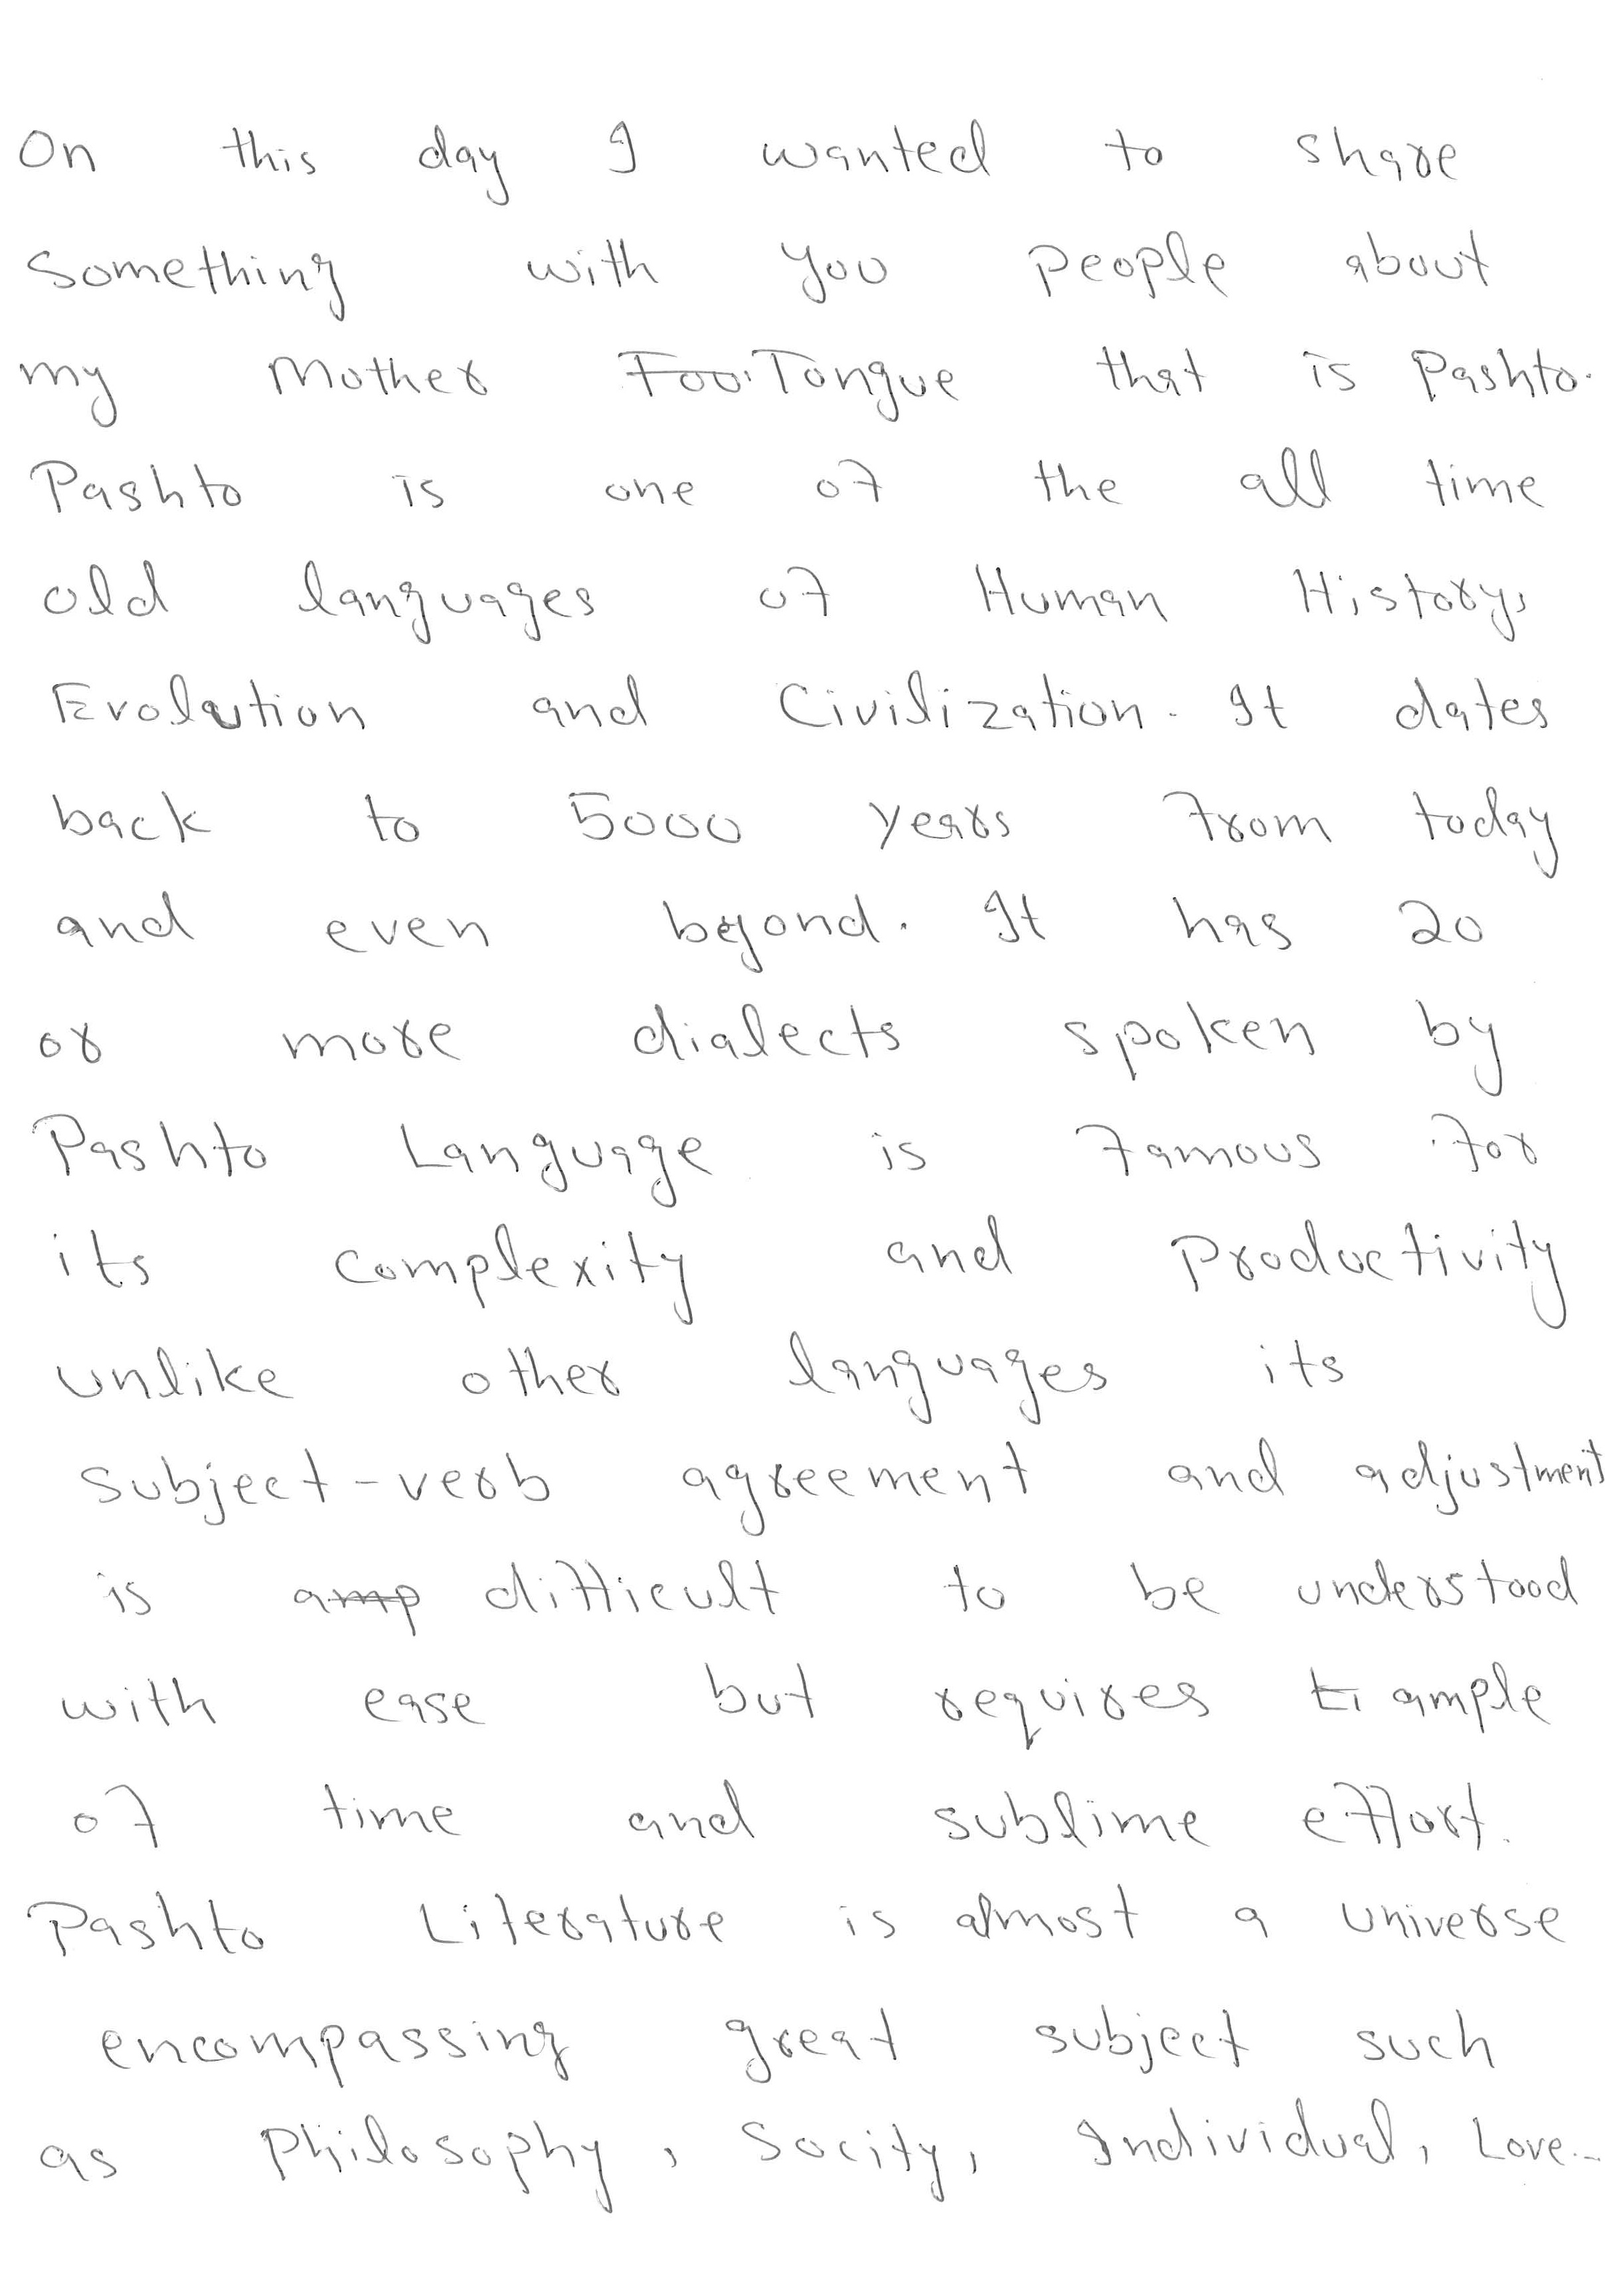 On this day I wanted to share
Something with you people about
my Mother Foo Tongue that is Pashto.
Pashto is one of the all time
old languages of Human History,
Evolution and Civilization. It dates
back to 5000 years from today
and even beyond. It has 20
or more dialects spoken by
Pashto Language is famous for
its complexity and Productivity
unlike other languages its
subject-verb agreement and adjustment
is amp difficult to be understood
with ease but requires ti ample
of time and sublime effort.
Pashto Literature is almost a universe
encompassing great subject such
as Philosophy, Socity, Individual, Love...